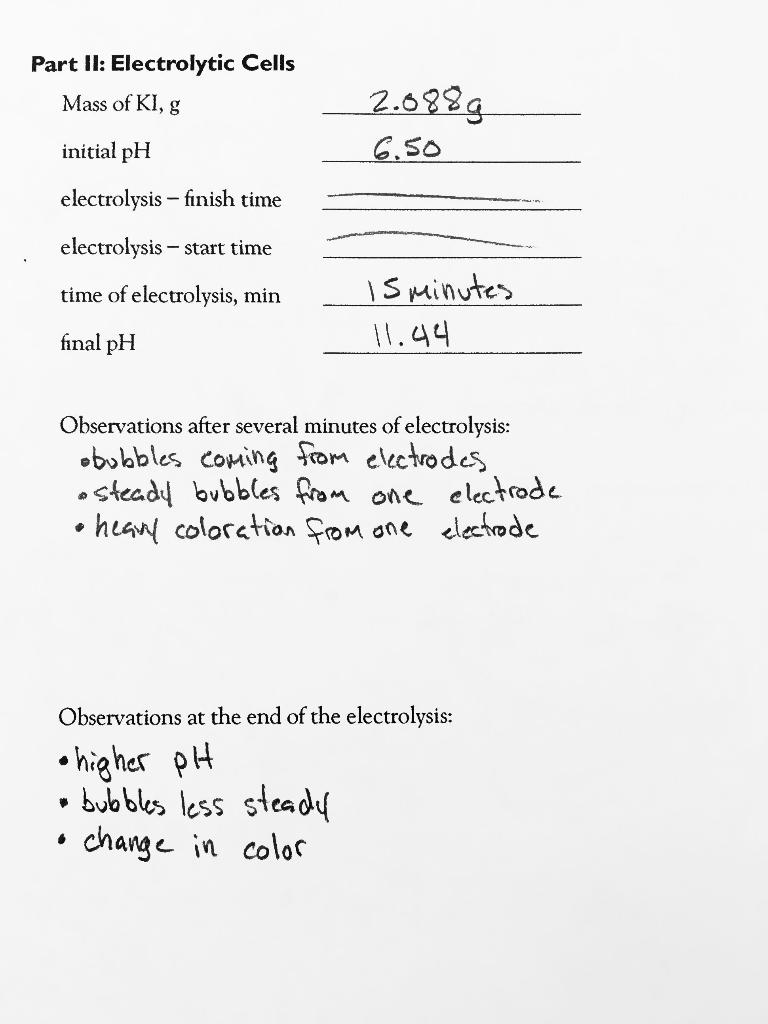 Part II: Electrolytic Cells
Mass of KI, g 2.088g
initial pH 6.50
electrolysis – finish time
electrolysis – start time
time of electrolysis, min 15 minutes
final pH 11.44
Observations after several minutes of electrolysis:
•bubbles coming from electrodes
•steady bubbles from one electrode
•heavy coloration from one electrode
Observations at the end of the electrolysis:
•higher pH
•bubbles less steady
•change in color